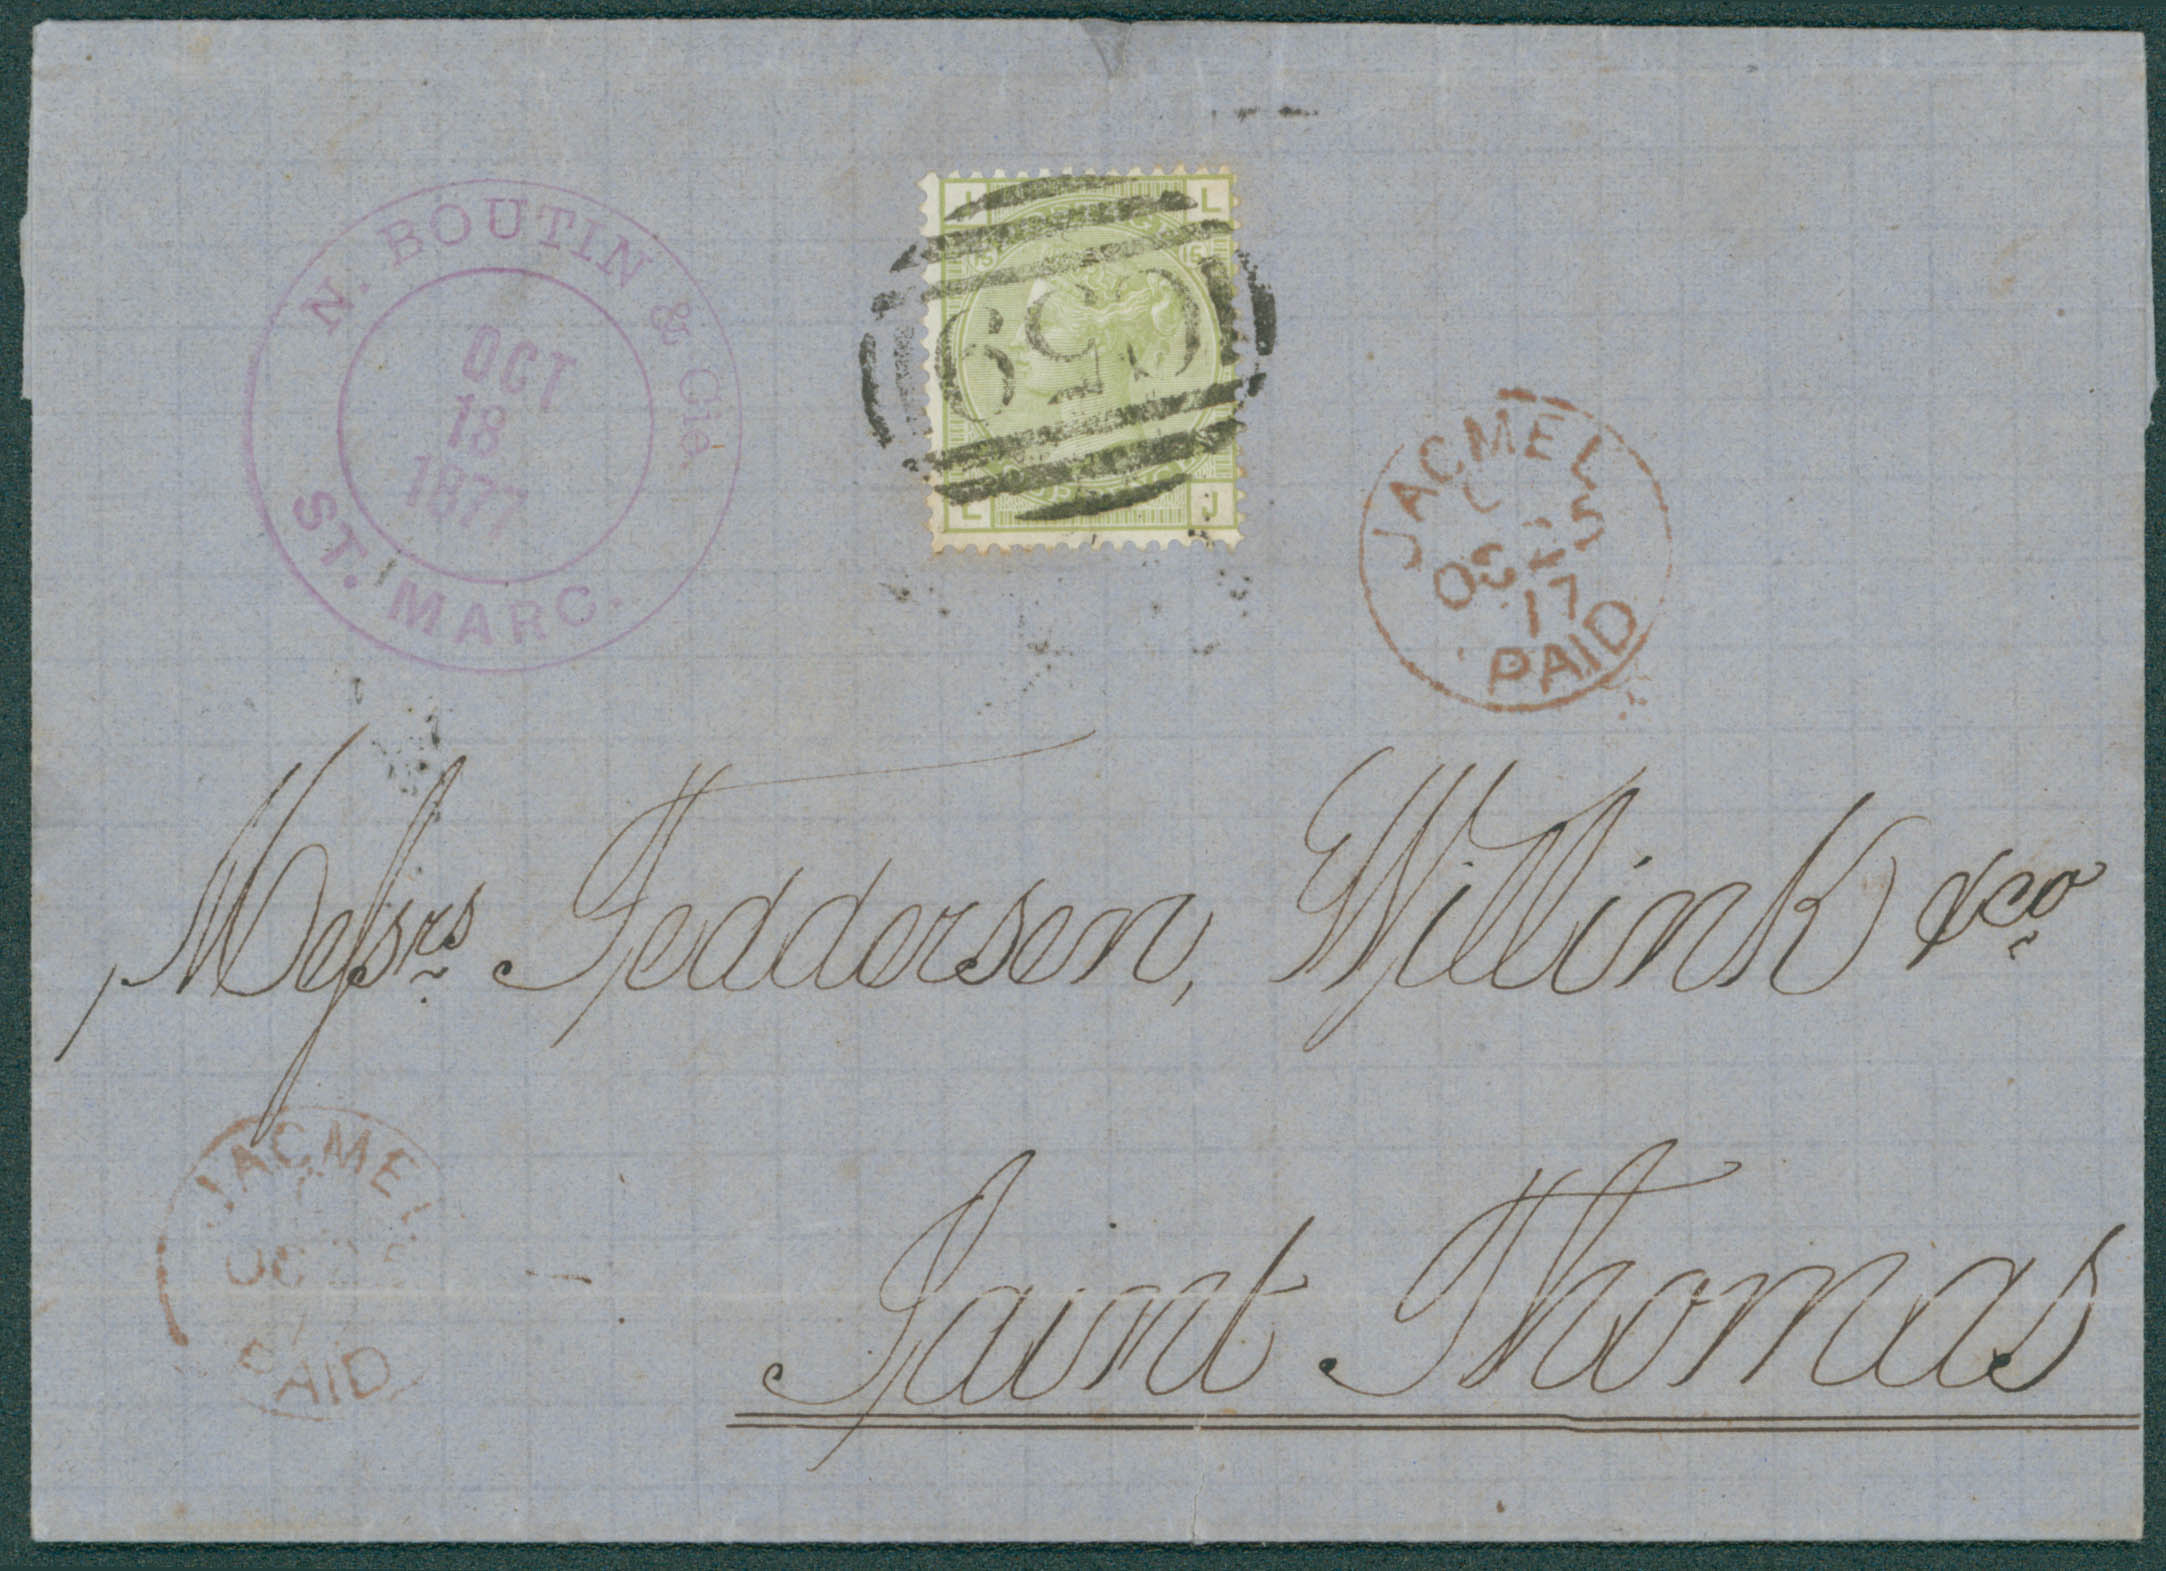 N. BOUTIN & Cie.
OCT
18
1877
ST. MARC.
J L
15 15
C59
L J
JACMEL
C
OC 25
77
PAID
Messrs Feddersen, Willink & co
JACMEL
OC 25
7
PAID
Saint Thomas